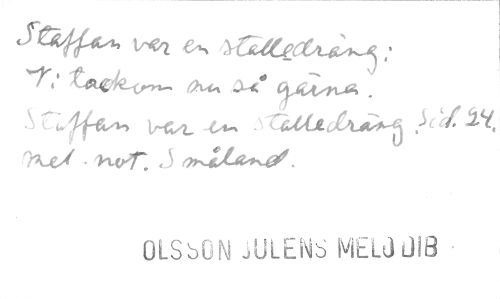 Staffan var en stalledräng;
Vi tackom nu så gärna.
Staffan var en stalledräng. Sid. 24.
mel. not. Småland.
OLSSON JULENS MELODIB